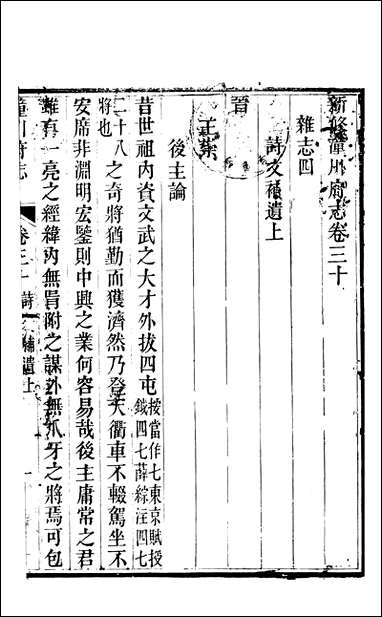 新修潼川府志卷三十
雜志四
詩文補遺上
晉
王崇
後主論
昔世祖内資文武之大才外拔四屯按當作七東京賦授鉞四七薛綜注四七
二十八將也之奇將猶勤而獲濟然乃登天衢車不輟駕坐不
安席非淵明宏鑒則中興之業何容易哉後主庸常之君
雖有一亮之經緯内無胥附之謀外無爪牙之將焉可包
潼川府志
卷三十
詩文補遺上
一